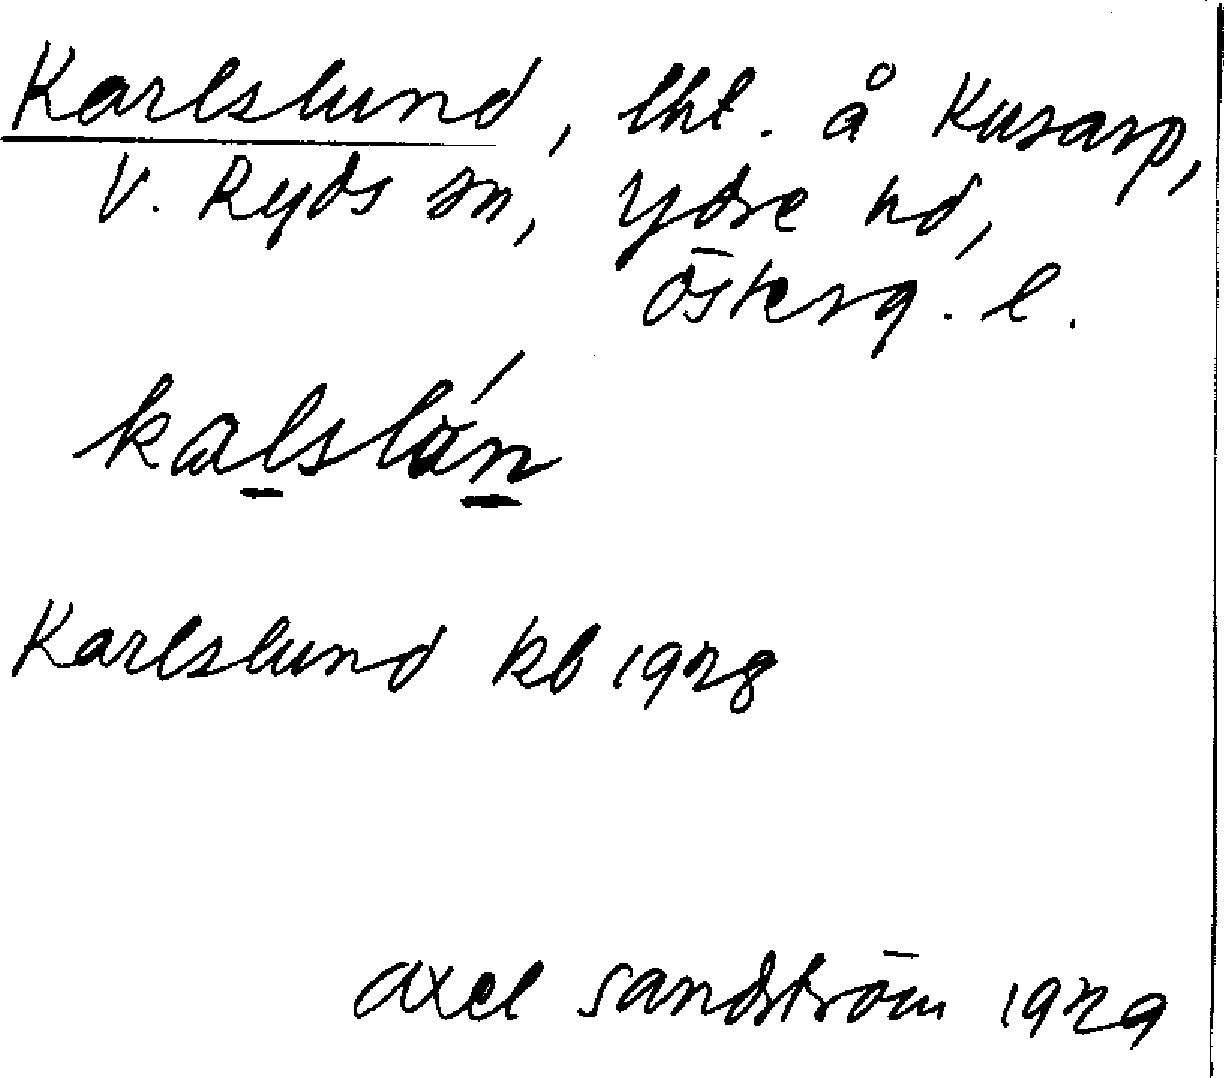 Karlslund, lht. å Kusarp,
V. Ryds sn, Ydre hd,
Österg. l.
kalslön
Karlslund kb 1928
Axel Sandström 1929